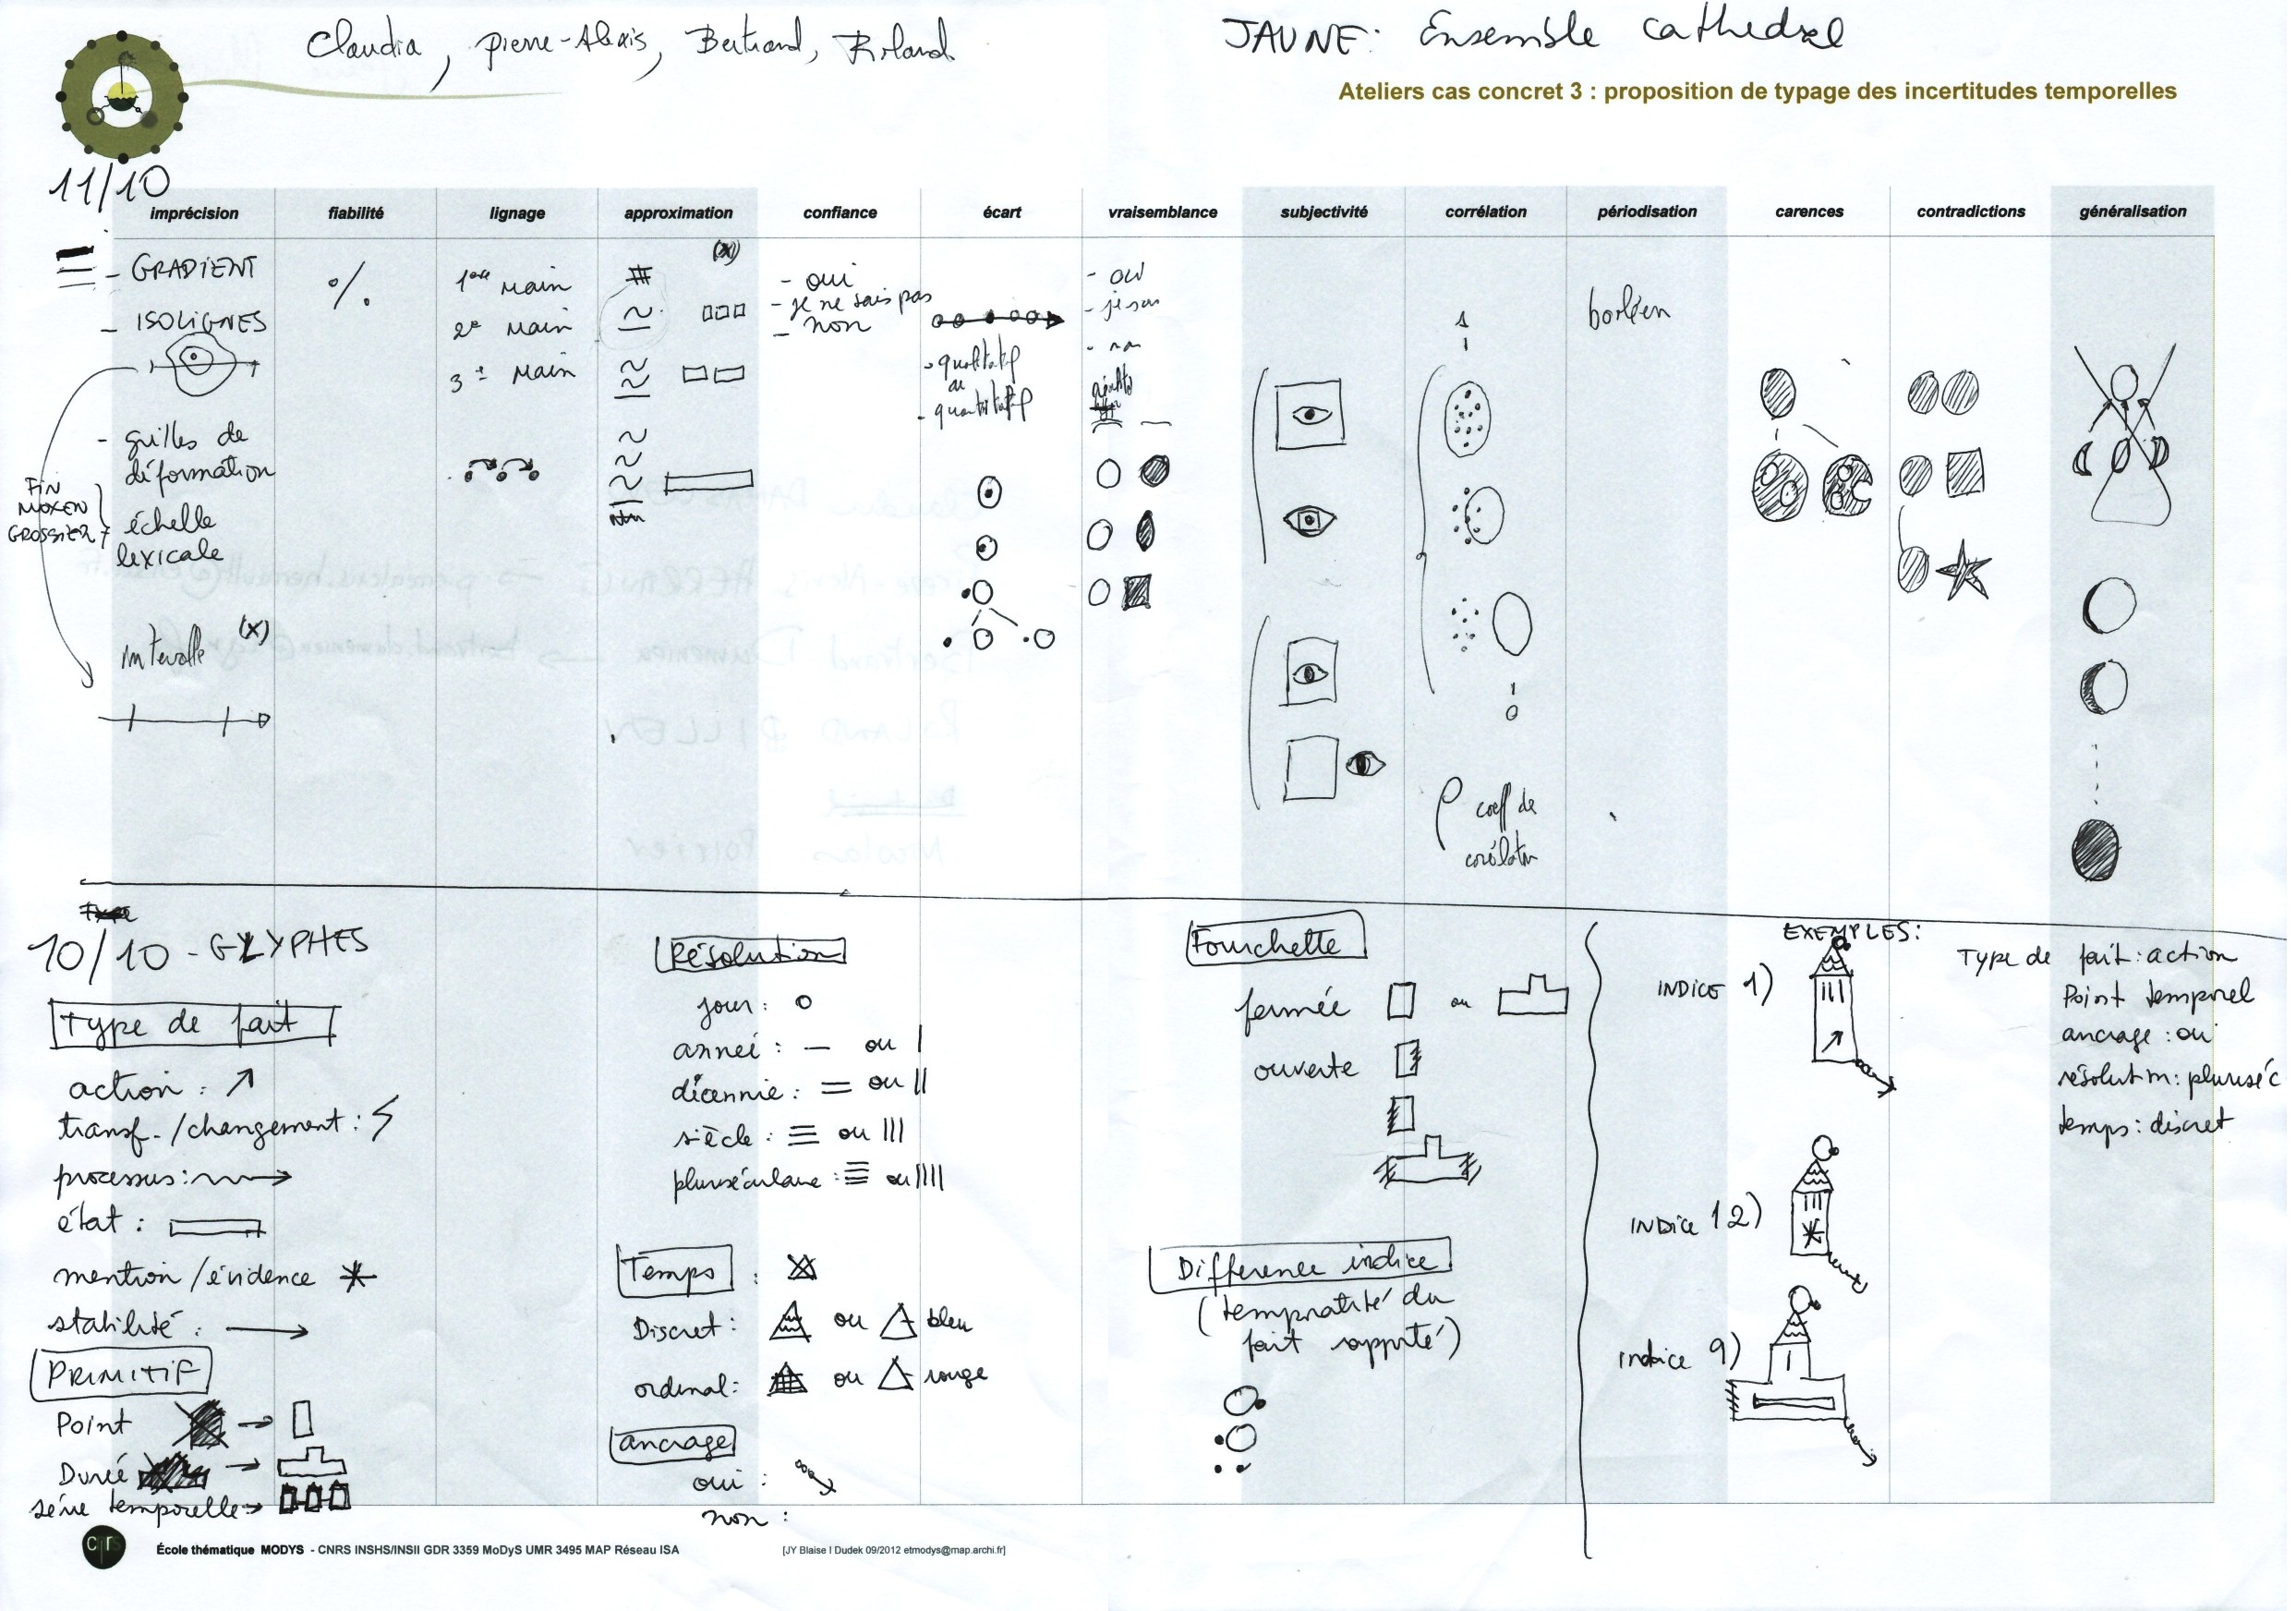 Claudia, Pierre-Alexis, Bertrand, Roland
JAUNE: Ensemble cathedral
Ateliers cas concret 3 : proposition de typage des incertitudes temporelles
11/10
imprécision fiabilité lignage approximation confiance écart vraisemblance subjectivité corrélation périodisation carences contradictions généralisation
- GRADIENT
- ISOLIGNES
- grilles de
déformation
échelle
lexicale
FIN
MOYEN
GROSSIER
intervalle (x)
%
1ère main
2e main
3e main
(x)
- oui
- je ne sais pas
- non
- qualitatif
ou
- quantitatif
- oui
- non
1
0
coeff de
corélation
boréen
10/10 - GLYPHES
Type de fait
action :
transf. /changement :
processus :
état :
mention /évidence
stabilité :
PRIMITIF
Point
Durée
série temporelle
Résolution
jour :
année : — ou |
décennie : = ou ||
siècle : ≡ ou |||
pluriséculaire : ou ||||
Temps :
Discret : ou bleu
ordinal : ou rouge
ancrage
oui :
non :
Fourchette
fermée ou
ouverte
Difference indice
(temporalité du
fait rapporté)
EXEMPLES :
INDICE 1)
INDICE 12)
Indice 9)
Type de fait : action
Point temporel
ancrage : oui
résolution : pluriséc
temps : discret
cnrs
École thématique MODYS - CNRS INSHS/INSII GDR 3359 MoDyS UMR 3495 MAP Réseau ISA
[JY Blaise I Dudek 09/2012 etmodys@map.archi.fr]